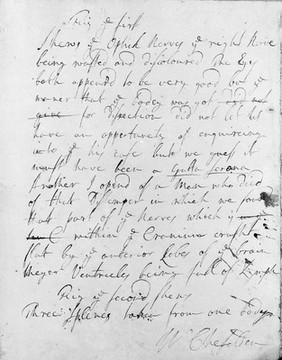 Fig ye first
Shews ye Optick Nerves ye right Nerve
being wasted and discoloured The Eyes
both appeard to be very good but ye
manner that ye body was got and not
give for disection did not let us
have an oppertunety of enquireing
in to ye his case but we guess it
must have been a Gutta Serena
Another I opend of a Man who died
of that Distemper in which we found
that part of ye Nerves which is
within ye Cranium crush
flat by ye anterior lobes of ye brain
theyer Ventricles being full of Lymph
Fig ye second shews
Three Spleens taken from one body
Wm Cheselden